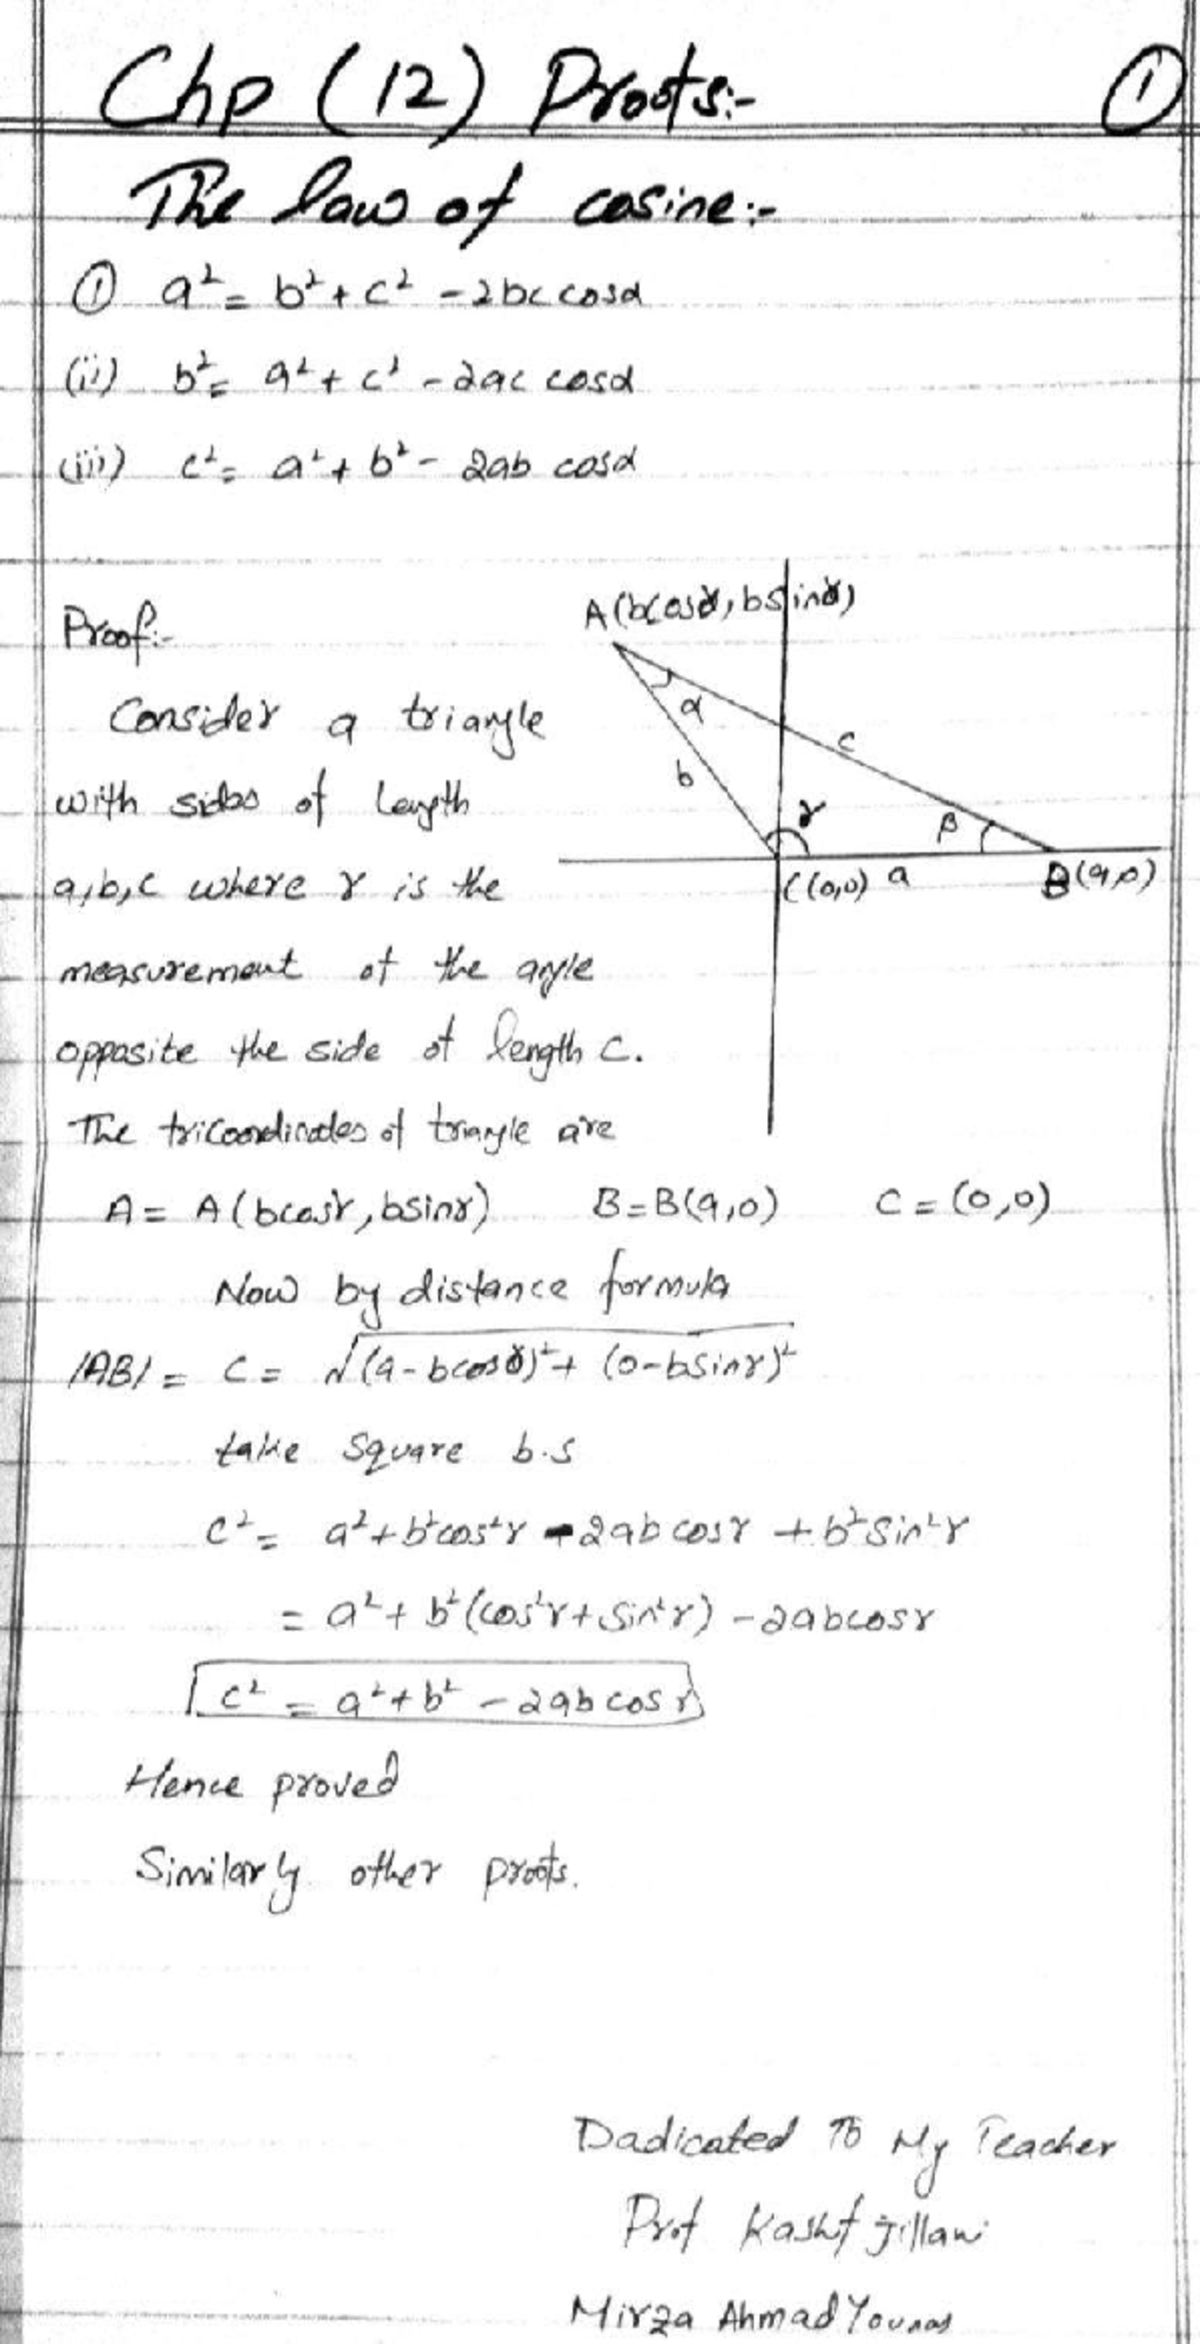 Chp (12) Proofs:-
①
The law of cosine:-
① a² = b² + c² - 2bc cosα
(ii) b² = a² + c² - 2ac cosα
(iii) c² = a² + b² - 2ab cosα
A(bcosγ, bsinγ)
Proof:-
α
Consider a triangle
c
b
with sides of length
γ
β
a,b,c where γ is the
C(0,0) a B(a,0)
measurement of the angle
opposite the side of length c.
The tricoordinates of triangle are
A = A(bcosγ, bsinγ) B=B(a,0) C = (0,0)
Now by distance formula
|AB| = C = √(a-bcosγ)² + (0-bsinγ)²
take square b.s
c² = a² + b²cos²γ - 2ab cosγ + b²sin²γ
= a² + b²(cos²γ + sin²γ) - 2abcosγ
c² = a² + b² - 2ab cosγ
Hence proved
Similarly other proofs.
Dadicated To My Teacher
Prof Kashf jillani
Mirza Ahmad Younas